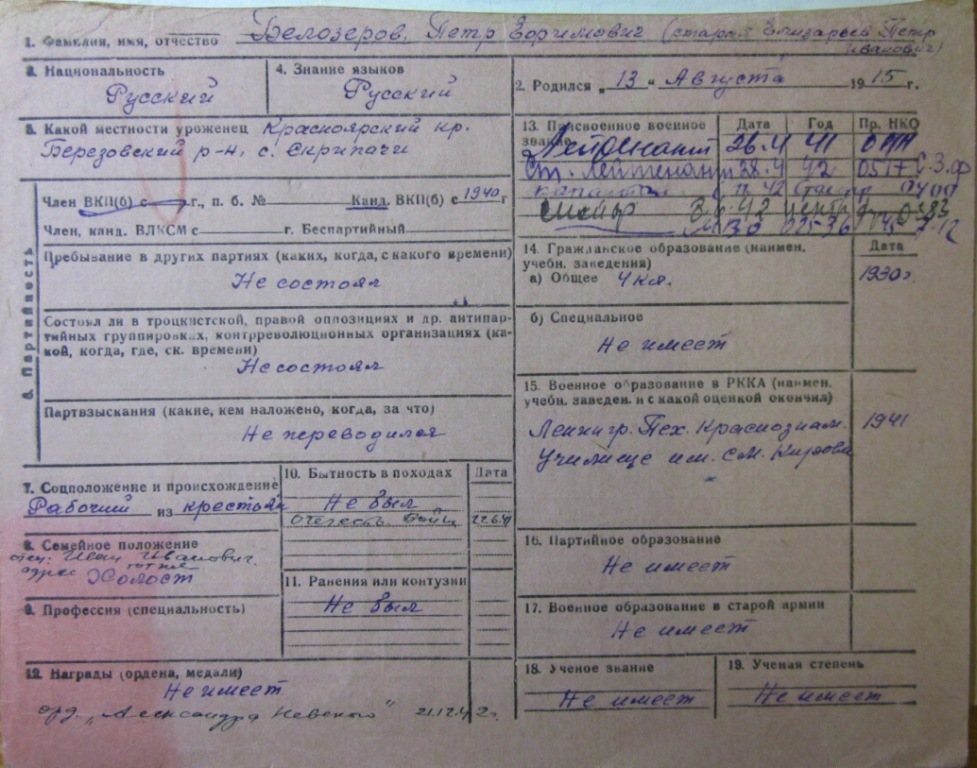 1. Фамилия, имя, отчество Белозеров, Петр (старая Елизарьев Петр
Иванович)
3. Национальность
Русский
4. Знание языков
Русский
2. Родился „13“ Августа 1915 г.
5. Какой местности уроженец Красноярский кр.
Березовский р-н, с. Скрипачи
13. Присвоенное военное звание
Дата
Год
Пр. НКО
Лейтенант 26.4 41
Ст. Лейтенант 28.4 42 0517 С.З.ф
капитан
майор
6. Партийность
Член ВКП(б) с г., п. б. № Канд. ВКП(б) с 1940 г.
Член, канд. ВЛКСМ с г. Беспартийный
Пребывание в других партиях (каких, когда, с какого времени)
Не состоял
Состоял ли в троцкистской, правой оппозиции и др. антипар-
тийных группировках, контрреволюционных организациях (ка-
кой, когда, где, ск. времени)
Не состоял
Партвзыскания (какие, кем наложено, когда, за что)
Не переводился
14. Гражданское образование (наимен.
учебн. заведения)
Дата
а) Общее 4 кл.
1930 г.
б) Специальное
Не имеет
15. Военное образование в РККА (наимен.
учебн. заведен. и с какой оценкой окончил)
Ленингр. Тех. Краснознам.
1941
Училище им. С.М. Кирова
7. Соцположение и происхождение
Рабочий из крестьян
8. Семейное положение
отец: Иван Иванович.
адрес
Холост
9. Профессия (специальность)
10. Бытность в походах
Дата
Не был
Отечеств. война 22.6.41
11. Ранения или контузии
Не был
16. Партийное образование
Не имеет
17. Военное образование в старой армии
Не имеет
12. Награды (ордена, медали)
Не имеет
орд. „Александра Невского“ 21.12.42 г.
18. Ученое звание
Не имеет
19. Ученая степень
Не имеет